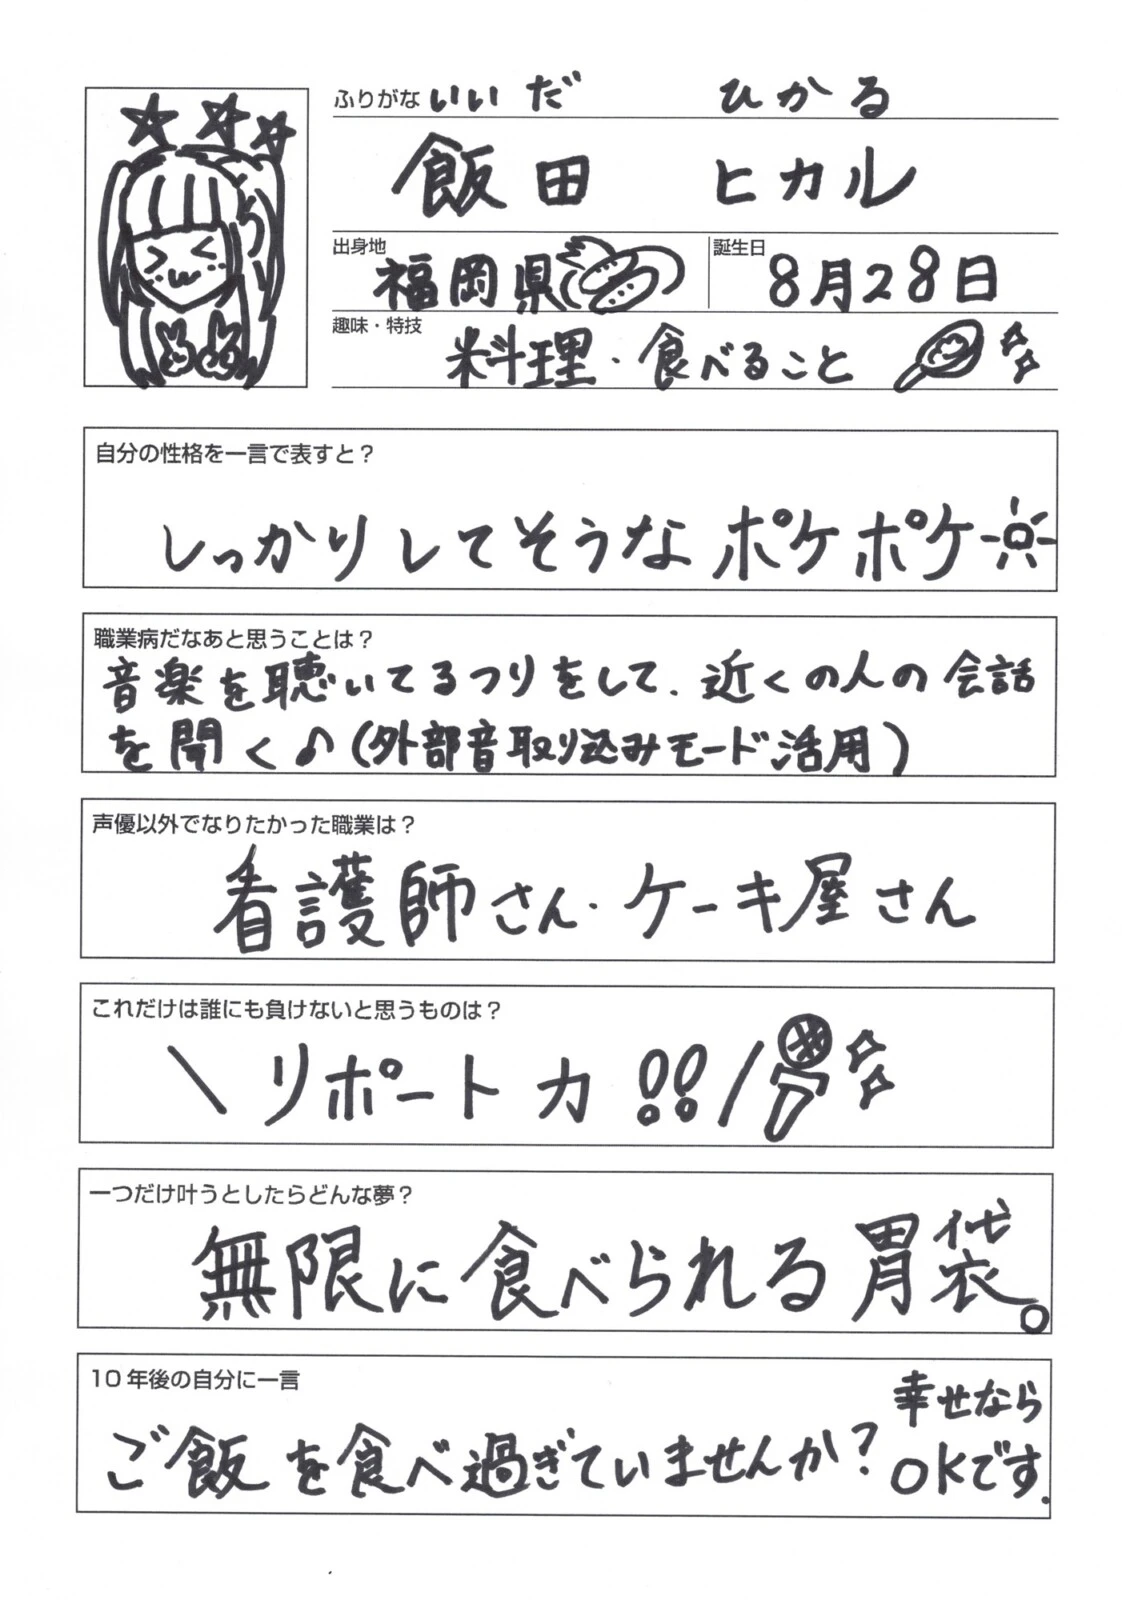 ふりがな いいだ ひかる
飯田 ヒカル
出身地 福岡県
誕生日 8月28日
趣味・特技
料理・食べること
自分の性格を一言で表すと？
しっかりしてそうなポケポケ
職業病だなあと思うことは？
音楽を聴いてるつりをして、近くの人の会話
を聞く♪(外部音取り込みモード活用)
声優以外でなりたかった職業は？
看護師さん・ケーキ屋さん
これだけは誰にも負けないと思うものは？
＼リポート力!!／
一つだけ叶うとしたらどんな夢？
無限に食べられる胃袋。
10年後の自分に一言
ご飯を食べ過ぎていませんか？
幸せなら
OKです.